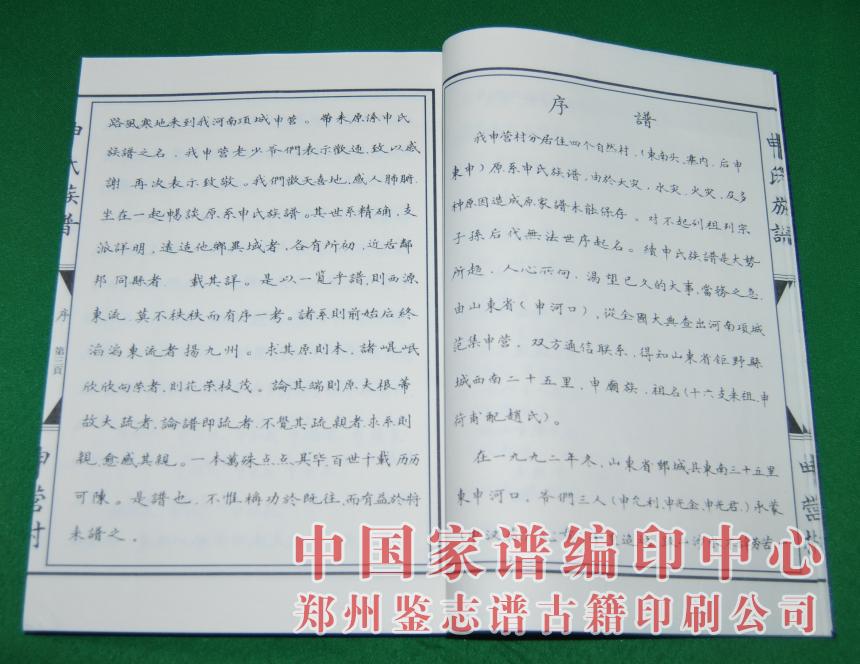 序 譜
我申营村分居住四个自然村,(東南头、寨内、后申
東申)原系申氏族譜,由於大灾,水灾,火灾,及多
种原因造成原家譜未能保存。对不起列祖列宗
子孫后代無法世序起名。續申氏族譜是大勢
所趋,人心所向,渴望已久的大事,當務之急,
由山東省(申河口),從全國大典查出河南項城
范集申营,双方通信联系,得知山東省鉅野縣
城西南二十五里,申廟族,祖名(十六支末祖,申
荷甫配趙氏)。
在一九九二年冬,山東省鄆城县東南三十五里
東申河口,爷們三人(申允利,申光金,申光君,)承蒙
路風寒地来到我河南項城申营。带来原係申氏
族譜之名,我申营老少爷們表示歡迎,致以感
謝 再次表示致敬。我們歡天喜地,感人肺腑,
坐在一起暢談原系申氏族譜。其世系精确,支
派詳明,遠造他鄉異域者,各有所初,近居鄰
邦 同縣者 載其詳。是以一覧乎譜,則西源
東流,莫不秩秩而有序一考。諸系則前始后終
滔滔東流者揚九州。求其原則本,諸岷岷
欣欣向荣者,則花荣枝茂。論其端則原夫根蒂
故大疏者,論譜即疏者,不覺其疏,親者求系則
親,愈感其親。一本萬殊点点其毕,百世千載历历
可陳。是譜也,不惟稱功於既往,而有益於將
来譜之。
申氏族譜
序
第三頁
申营村
申氏族譜
申营村
中国家谱编印中心
郑州鉴志谱古籍印刷公司